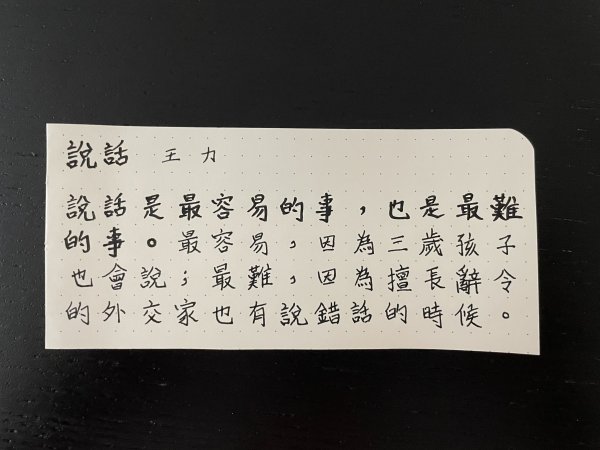 說話 王力
說話是最容易的事，也是最難
的事。最容易，因為三歲孩子
也會說；最難，因為擅長辭令
的外交家也有說錯話的時候。